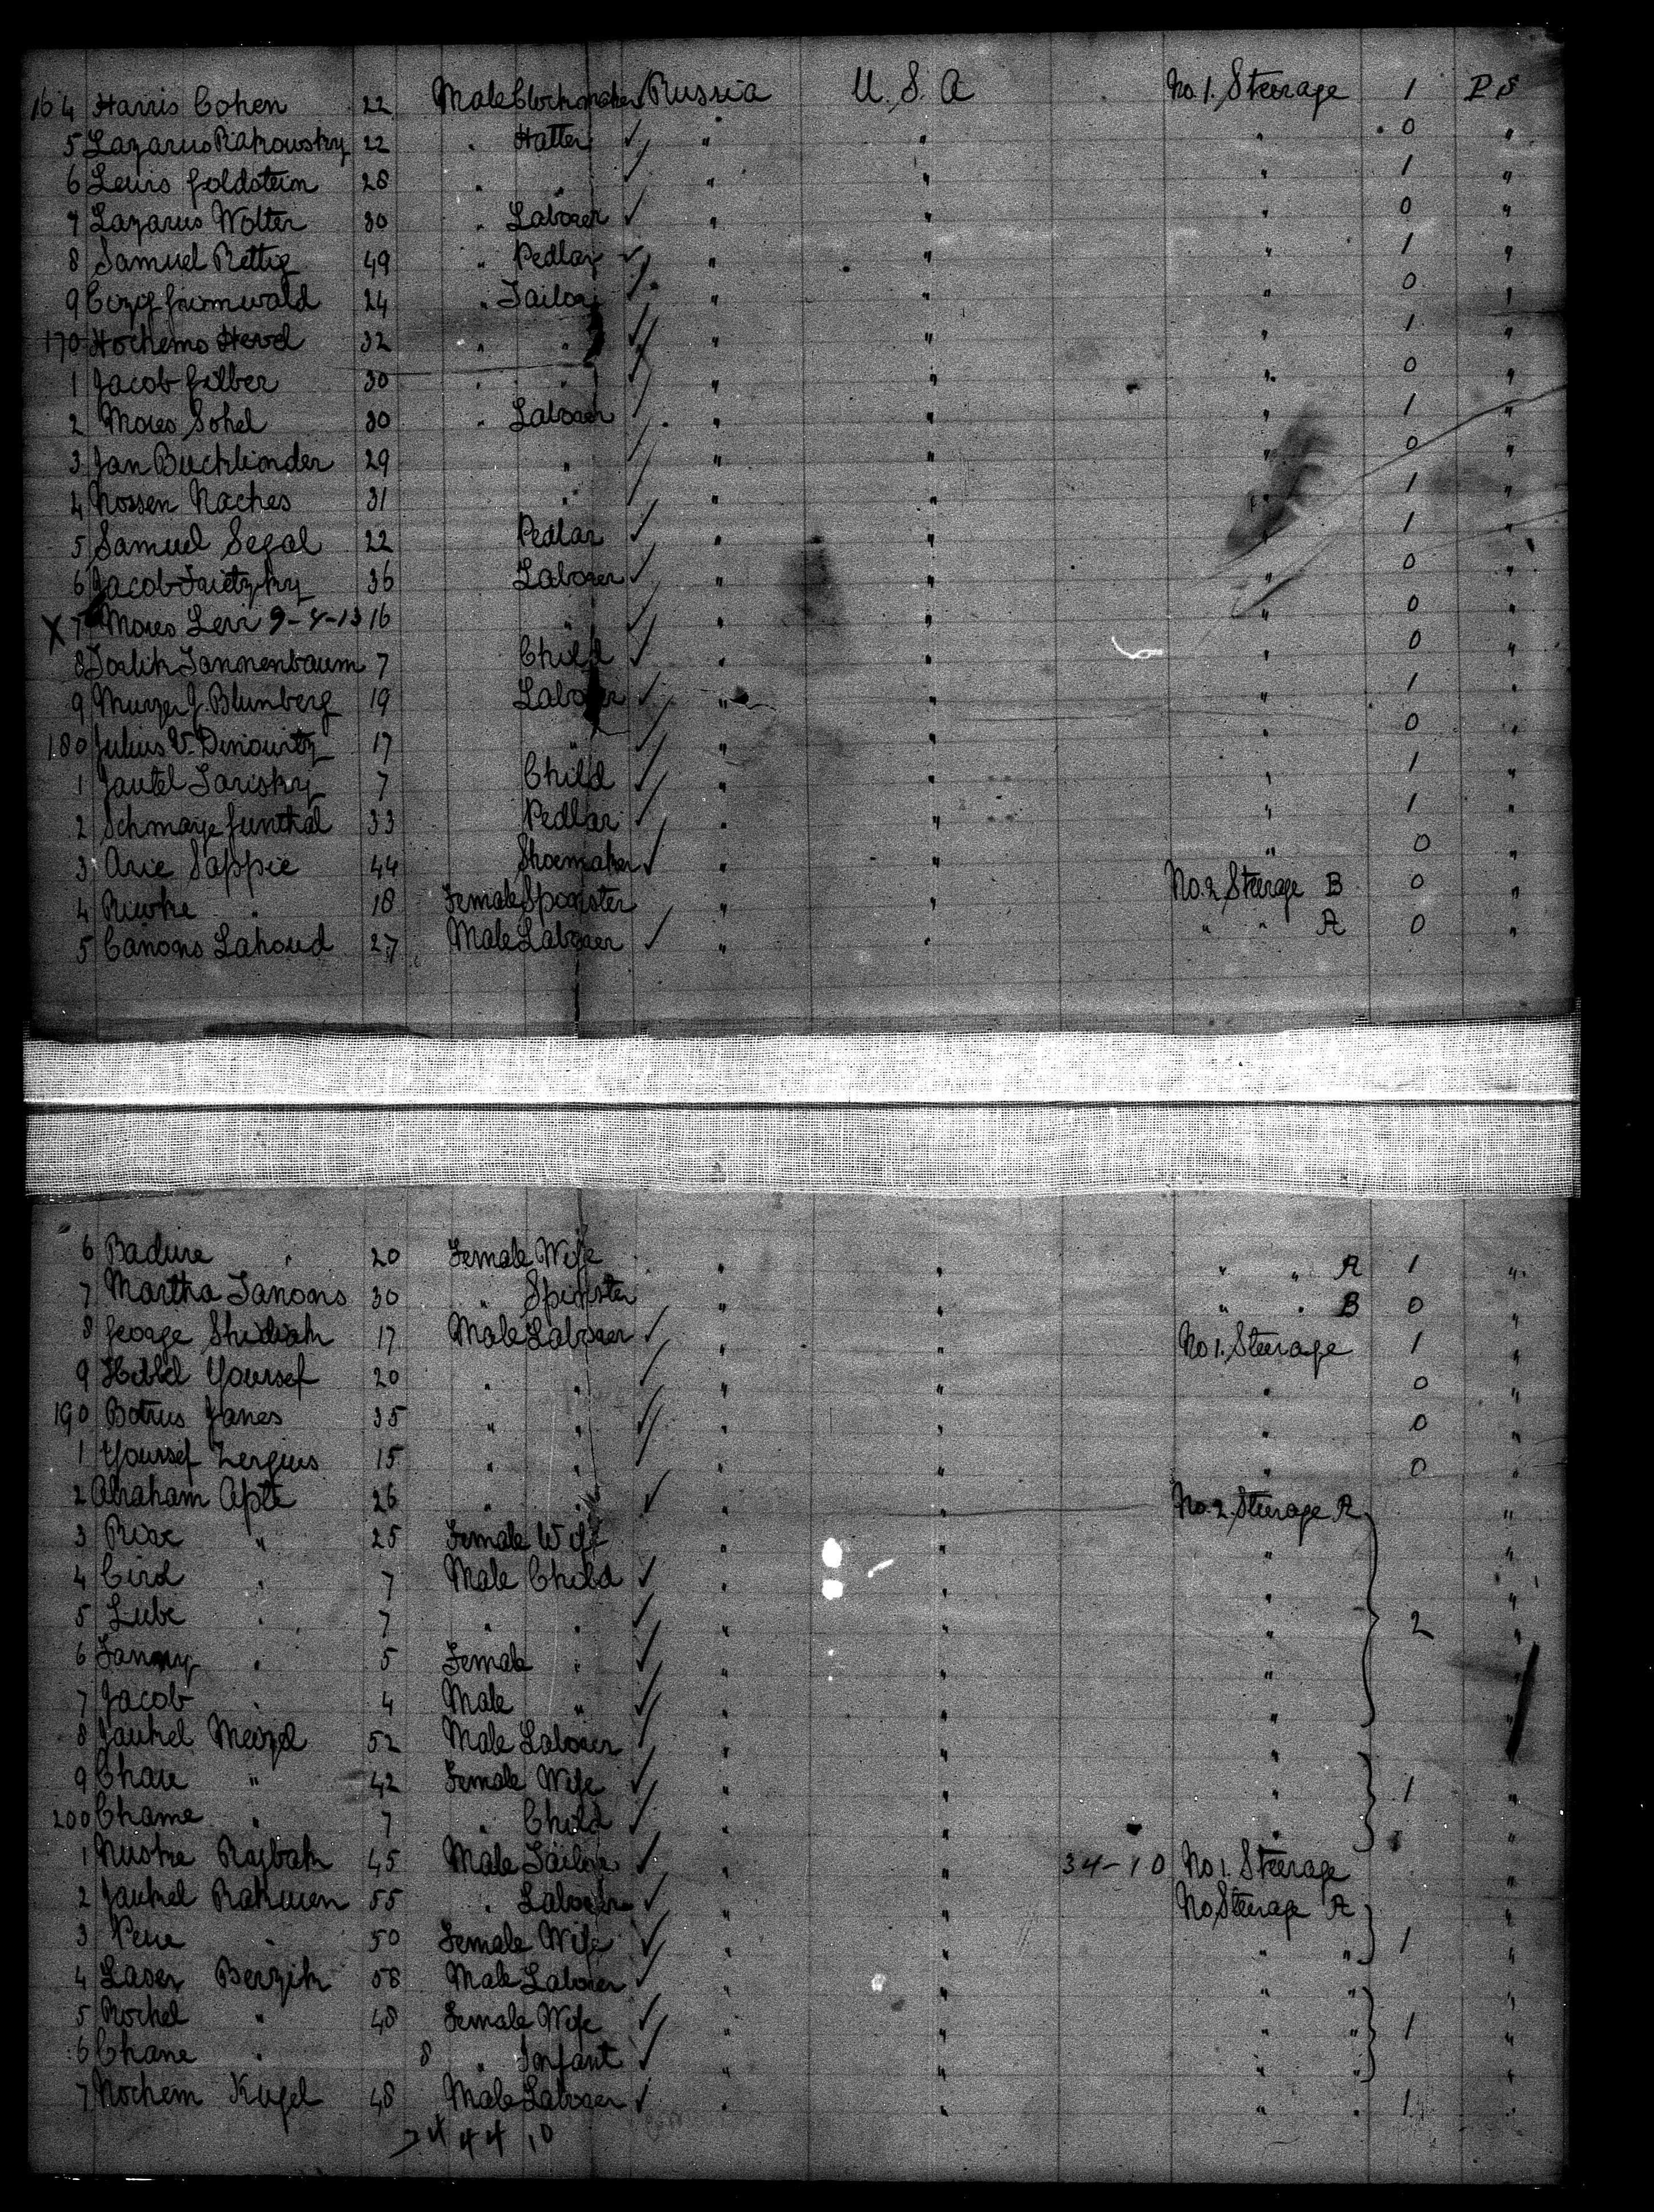 164 Harris Cohen 22 Male Clockmaker Russia U.S.A No.1. Steerage 1 P S
5 Lazarus Rakowsky 22 " Hatter " " " 0 "
6 Lewis Goldstein 28 " " " " " 1 "
7 Lazarus Wolter 30 " Laborer " " " 0 "
8 Samuel Rettig 49 " Pedlar " " " 1 "
9 Grunwald 24 " Tailor " " " 0 "
170 Hochemo 32 " " " " " 1 "
1 Jacob Gilber 30 " " " " " 0 "
2 Moses Sohel 30 " Laborer " " " 1 "
3 Jan Buchbinder 29 " " " " 0 "
4 Nossen Naches 31 " " " " 1 "
5 Samuel Segal 22 Pedlar " " " 1 "
6 Jacob 36 Laborer " " " 0 "
X 7 Moses Levi 9-4-13 16 " " " " 0 "
8 Tannenbaum 7 Child " " " 0 "
9 J. Blumberg 19 Laborer " " " 1 "
180 Julius V. Dinowitz 17 " " " " 0 "
1 Jantel Tarisky 7 Child " " " 1 "
2 Schmaye Gunthal 33 Pedlar " " " 1 "
3 Arie Sappie 44 Shoemaker " " " 0 "
4 Riwke " 18 Female Spinster " " No.2 Steerage B 0 "
5 Canons Lahoud 27 Male Laborer " " " " A 0 "
6 Badure " 20 Female Wife " " " " A 1 "
7 Martha Tanons 30 " Spinster " " " " B 0 "
8 George Shidiak 17 Male Laborer " " No 1. Steerage 1 "
9 Youssef 20 " " " " " 0 "
190 Botrus Janes 35 " " " " " 0 "
1 Youssef Zergius 15 " " " " " 0 "
2 Abraham Apte 26 " " " " No.2. Steerage A "
3 Rive " 25 Female Wife " " " "
4 Cird " 7 Male Child " " " "
5 Lube " 7 " " " " " 2 "
6 Fanny " 5 Female " " " " "
7 Jacob " 4 Male " " " " "
8 Jankel Meizel 52 Male Laborer " " " "
9 Chaie " 42 Female Wife " " " 1 "
200 Chame " 7 " Child " " " "
1 Nuske Rajbak 45 Male Tailor " " 34-10 No 1. Steerage "
2 Jankel Rakuen 55 " Laborer " " No Steerage A "
3 Pere " 50 Female Wife " " " " 1 "
4 Laser Berzik 58 Male Laborer " " " " "
5 Rochel " 48 Female Wife " " " " 1 "
6 Chane " 8 " Infant " " " " "
7 Nochem Kugel 48 Male Laborer " " " " 1 "
44 10